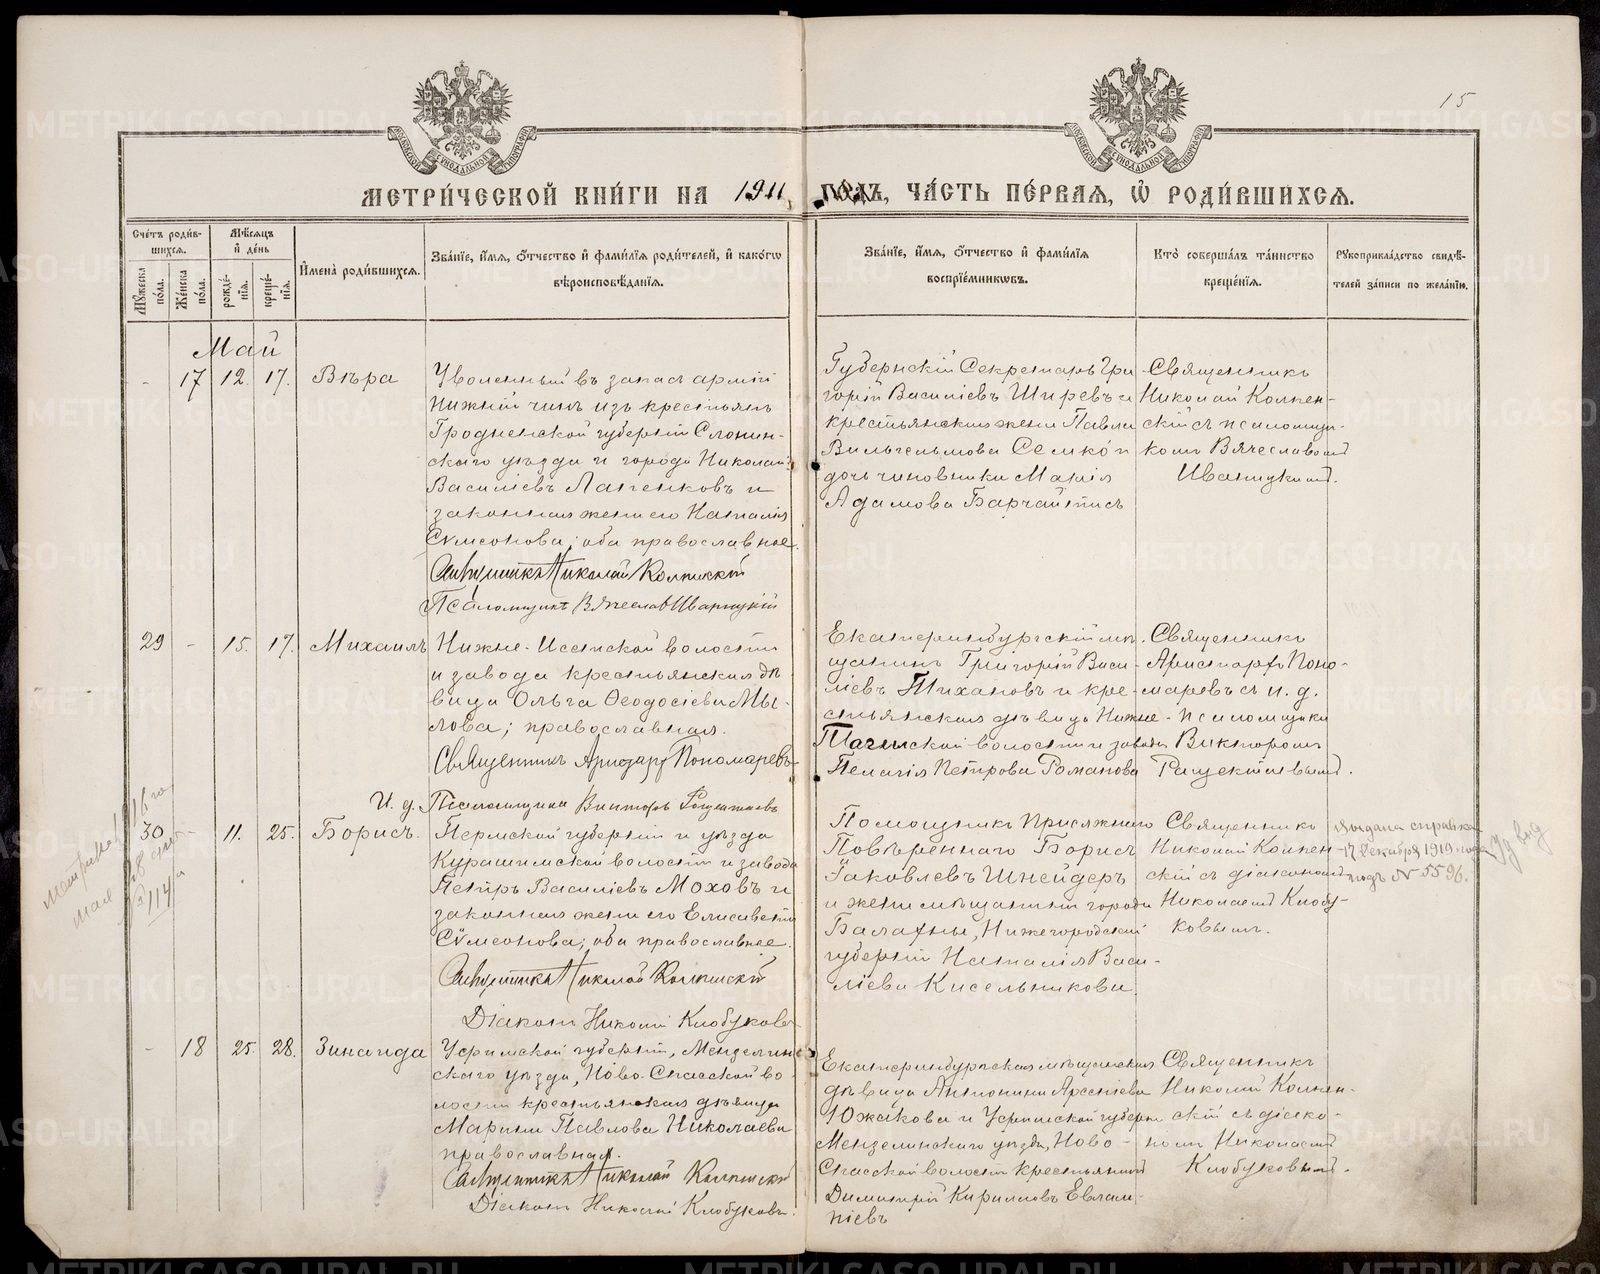 15
МЕТРИЧЕСКОЙ КНИГИ НА 1911 ГОДЪ, ЧАСТЬ ПЕРВАЯ, Ѡ РОДИВШИХСЯ.
Счетъ родившихся.
Мужеска пола.
Женска пола.
Мѣсяцъ и день
рожденія.
крещенія.
Имена родившихся.
Званіе, имя, отчество и фамилія родителей, и какого
вѣроисповѣданія.
Званіе, имя, отчество и фамилія
воспріемниковъ.
Кто совершалъ таинство
крещенія.
Рукоприкладство свидѣ-
телей записи по желанію.
Май
- 17 12. 17. Вѣра
Уволенный въ запасъ арміи
нижній чинъ изъ крестьянъ
Гродненской губерніи Слоним-
скаго уѣзда и города Николай
Василіевъ Лапенковъ и
законная жена его Наталія
Сѵмеонова; оба православные.
Священникъ Николай
Псаломщикъ Вячеслав Иваницкій
Губернскій Секретарь Гри
горій Василіевъ Ширевъ и
крестьянская жена Павла
Вильгельмова Семко и
дочь чиновника Марія
Адамова Барчайтисъ
Священникъ
Николай
скій съ псаломщи-
комъ Вячеславомъ
Иваницкимъ.
29 - 15. 17. Михаилъ
Нижне-Исетской волости
и завода крестьянская дѣ
вица Ольга Ѳеодосіева Мы-
лова; православная.
Священникъ Аристархъ Пономаревъ
И. д. Псаломщика Викторъ
Екатеринбургскій мѣ-
щанинъ Григорій Васи-
ліевъ Тихановъ и кре-
стьянская дѣвица Нижне-
Тагильской волости и завода
Пелагія Петрова Романова
Священникъ
Аристархъ Поно-
маревъ съ и. д.
псаломщика
Викторомъ
30 - 11. 25. Борисъ.
Пермской губерніи и уѣзда
Курашимской волости и завода
Петръ Василіевъ Моховъ и
законная жена его Елисавета
Сѵмеонова; оба православные.
Священникъ Николай
Діаконъ Николай Клобуковъ
Помощникъ Присяжнаго
Повѣреннаго Борисъ
Іаковлевъ Шнейдеръ
и жена мѣщанина города
Балахны, Нижегородской
губерніи Наталія Васи-
ліева Кисельникова.
Священникъ
Николай
скій съ діакономъ
Николаемъ Клобу-
ковымъ.
Выдана справка
17 Декабря 1919 года
подъ № 5596.
- 18 25. 28. Зинаида
Уфимской губерніи, Мензелин
скаго уѣзда, Ново-Спасской во-
лости крестьянская дѣвица
Марина Павлова Николаева
православная.
Священникъ Николай
Діаконъ Николай Клобуковъ.
Екатеринбургская мѣщанская
дѣвица Антонина Арсеніева
Южакова и Уфимской губерніи
Мензелинскаго уѣзда, Ново-
Спасской волости крестьянинъ
Димитрій Кирилловъ Евлам-
піевъ
Священникъ
Николай
скій съ діако-
номъ Николаемъ
Клобуковымъ.